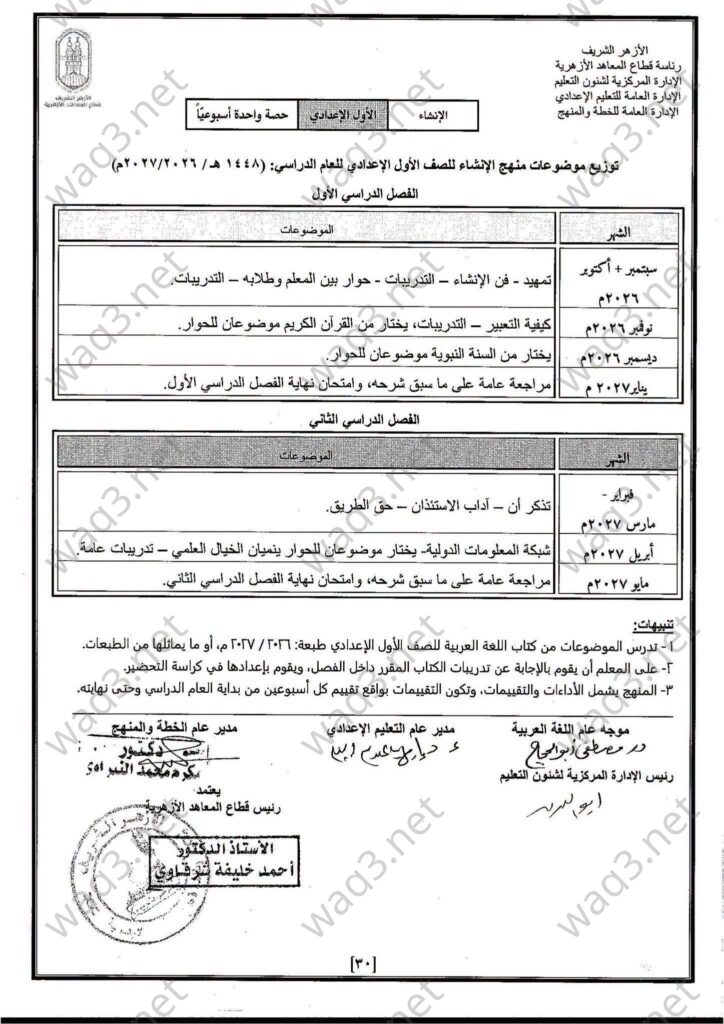 الأزهر الشريف
رئاسة قطاع المعاهد الأزهرية
الإدارة المركزية لشئون التعليم
الإدارة العامة للتعليم الإعدادي
الإدارة العامة للخطة والمنهج
الأزهر الشريف
قطاع المعاهد الأزهرية
الإنشاء الأول الإعدادي حصة واحدة أسبوعيًا
توزيع موضوعات منهج الإنشاء للصف الأول الإعدادي للعام الدراسي: (١٤٤٨ هـ / ٢٠٢٦/٢٠٢٧م)
الفصل الدراسي الأول
الشهر الموضوعات
سبتمبر + أكتوبر
٢٠٢٦م
تمهيد - فن الإنشاء – التدريبات - حوار بين المعلم وطلابه – التدريبات.
نوفمبر ٢٠٢٦م كيفية التعبير – التدريبات، يختار من القرآن الكريم موضوعان للحوار.
ديسمبر ٢٠٢٦م يختار من السنة النبوية موضوعان للحوار.
يناير٢٠٢٧ م مراجعة عامة على ما سبق شرحه، وامتحان نهاية الفصل الدراسي الأول.
الفصل الدراسي الثاني
الشهر الموضوعات
فبراير -
مارس ٢٠٢٧م
تذكر أن – آداب الاستئذان – حق الطريق.
أبريل ٢٠٢٧م شبكة المعلومات الدولية- يختار موضوعان للحوار ينميان الخيال العلمي – تدريبات عامة.
مايو ٢٠٢٧م مراجعة عامة على ما سبق شرحه، وامتحان نهاية الفصل الدراسي الثاني.
تنبيهات:
١- تدرس الموضوعات من كتاب اللغة العربية للصف الأول الإعدادي طبعة: ٢٠٢٦ / ٢٠٢٧ م، أو ما يماثلها من الطبعات.
٢- على المعلم أن يقوم بالإجابة عن تدريبات الكتاب المقرر داخل الفصل، ويقوم بإعدادها في كراسة التحضير.
٣- المنهج يشمل الأداءات والتقييمات، وتكون التقييمات بواقع تقييم كل أسبوعين من بداية العام الدراسي وحتى نهايته.
موجه عام اللغة العربية مدير عام التعليم الإعدادي مدير عام الخطة والمنهج
دكتور
رئيس الإدارة المركزية لشئون التعليم
يعتمد
رئيس قطاع المعاهد الأزهرية
الأستاذ الدكتور
أحمد خليفة شرقاوي
[٣٠]
waq3.net